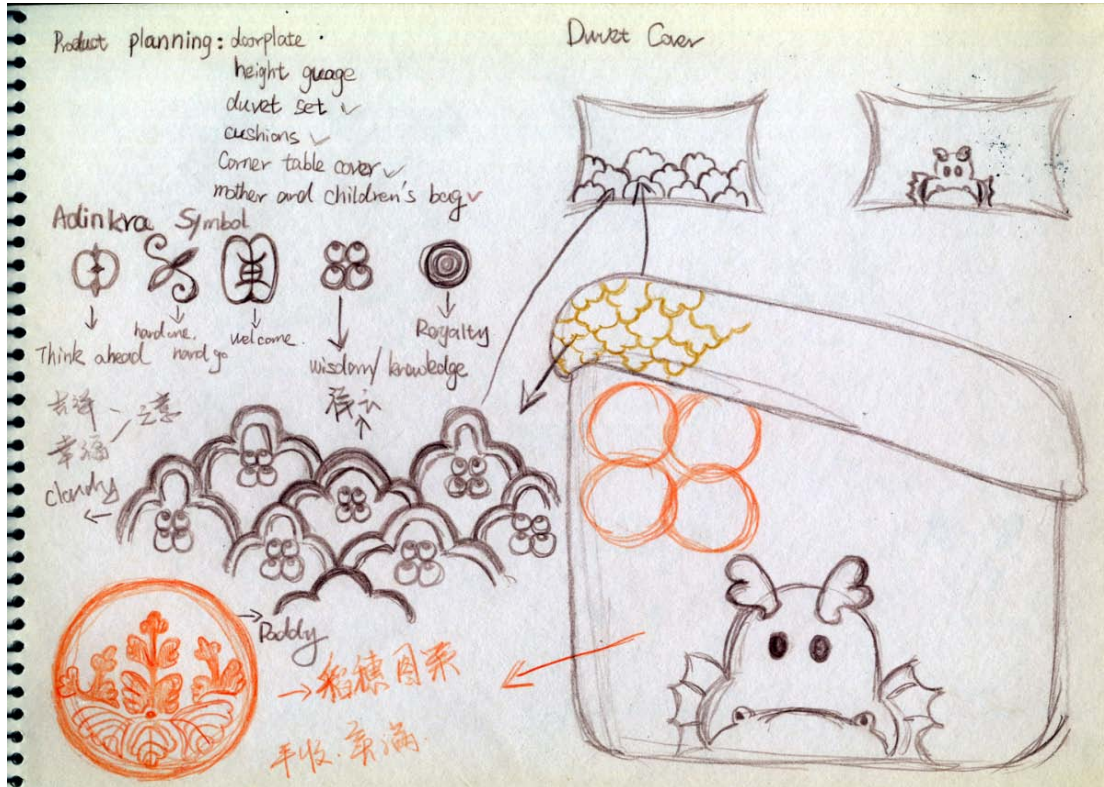 Product planning: doorplate
height guage
duvet set ✓
cushions ✓
Corner table cover ✓
mother and children's bag ✓
Duvet Cover
Adinkra Symbol
Think ahead
hard one,
hard go
welcome.
wisdom/knowledge
Royalty
吉祥
幸福
注意
祥云
cloudy
Paddy
稻穗图案
丰收.